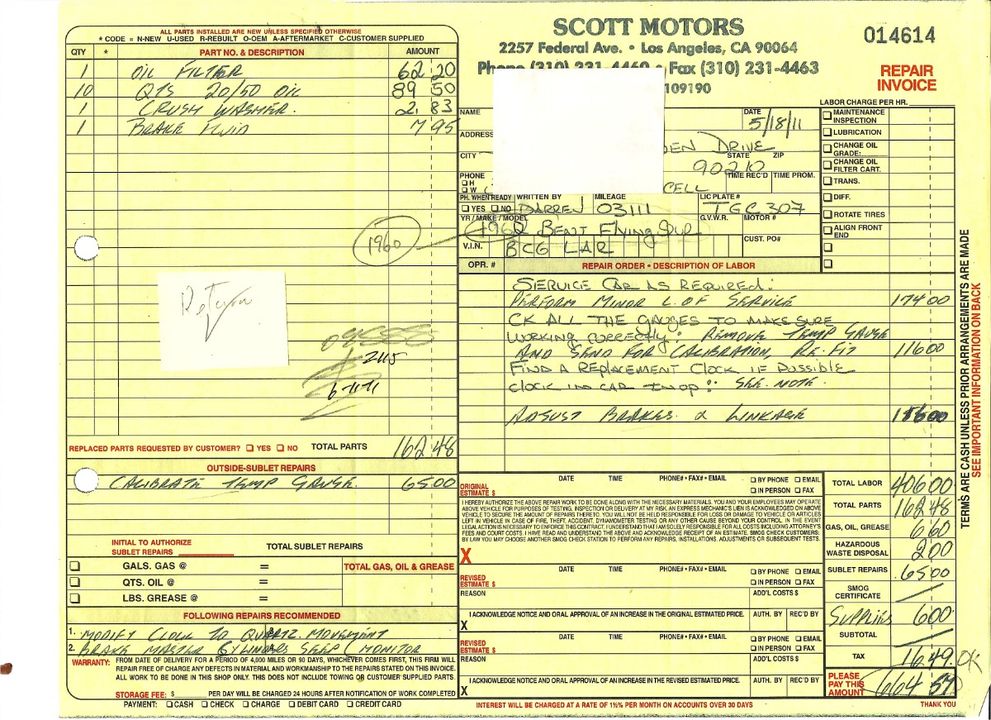 ALL PARTS INSTALLED ARE NEW UNLESS SPECIFIED OTHERWISE
* CODE = N-NEW U-USED R-REBUILT O-OEM A-AFTERMARKET C-CUSTOMER SUPPLIED
QTY * PART NO. & DESCRIPTION AMOUNT
1 OIL FILTER 62 20
10 QTS 20/50 OIL 89 50
1 CRUSH WASHER. 2 83
1 BRAKE FLUID 7 95
1960
Return
2115
REPLACED PARTS REQUESTED BY CUSTOMER? YES NO TOTAL PARTS 162.48
OUTSIDE-SUBLET REPAIRS
CALIBRATE TEMP GAUGE. 65.00
INITIAL TO AUTHORIZE
SUBLET REPAIRS TOTAL SUBLET REPAIRS
GALS. GAS @ = TOTAL GAS, OIL & GREASE
QTS. OIL @ =
LBS. GREASE @ =
FOLLOWING REPAIRS RECOMMENDED
1. MODIFY CLOCK TO QUARTZ. MOVEMENT
2. BRAKE MASTER CYLINDERS SEEP / MONITOR
WARRANTY: FROM DATE OF DELIVERY FOR A PERIOD OF 4,000 MILES OR 90 DAYS, WHICHEVER COMES FIRST, THIS FIRM WILL
REPAIR FREE OF CHARGE ANY DEFECTS IN MATERIAL AND WORKMANSHIP TO THE REPAIRS STATED ON THIS INVOICE.
ALL WORK TO BE DONE IN THIS SHOP ONLY. THIS DOES NOT INCLUDE TOWING OR CUSTOMER SUPPLIED PARTS.
STORAGE FEE: $ PER DAY WILL BE CHARGED 24 HOURS AFTER NOTIFICATION OF WORK COMPLETED
PAYMENT: CASH CHECK CHARGE DEBIT CARD CREDIT CARD
SCOTT MOTORS
2257 Federal Ave. • Los Angeles, CA 90064
Phone (310) 231-4460 • Fax (310) 231-4463
109190
014614
REPAIR
INVOICE
NAME DATE 5/18/11
ADDRESS DEN DRIVE
CITY STATE ZIP
90210
PHONE TIME REC'D TIME PROM.
H
W CELL
PH. WHEN READY WRITTEN BY MILEAGE LIC PLATE #
YES NO DARREN 03111 TGC 307
YR / MAKE / MODEL G.V.W.R. MOTOR #
1962 BENT FLYING SPUR
V.I.N. BCG LAR CUST. PO#
LABOR CHARGE PER HR.
MAINTENANCE INSPECTION
LUBRICATION
CHANGE OIL GRADE:
CHANGE OIL FILTER CART.
TRANS.
DIFF.
ROTATE TIRES
ALIGN FRONT END
OPR. # REPAIR ORDER • DESCRIPTION OF LABOR
SERVICE CAR AS REQUIRED:
PERFORM MINOR L.OF SERVICE 174 00
CK ALL THE GAUGES TO MAKE SURE
WORKING CORRECTLY: REMOVE TEMP GAUGE
AND SEND FOR CALIBRATION, RE-FIT 116 00
FIND A REPLACEMENT CLOCK IF POSSIBLE
CLOCK IN CAR INOP: SEE NOTE.
ADJUST BRAKES & LINKAGE 116 00
ORIGINAL ESTIMATE $ DATE TIME PHONE# • FAX# • EMAIL BY PHONE EMAIL
IN PERSON FAX
I HEREBY AUTHORIZE THE ABOVE REPAIR WORK TO BE DONE ALONG WITH THE NECESSARY MATERIALS. YOU AND YOUR EMPLOYEES MAY OPERATE
ABOVE VEHICLE FOR PURPOSES OF TESTING, INSPECTION OR DELIVERY AT MY RISK. AN EXPRESS MECHANIC'S LIEN IS ACKNOWLEDGED ON ABOVE
VEHICLE TO SECURE THE AMOUNT OF REPAIRS THERETO. YOU WILL NOT BE HELD RESPONSIBLE FOR LOSS OR DAMAGE TO VEHICLE OR ARTICLES
LEFT IN VEHICLE IN CASE OF FIRE, THEFT, ACCIDENT, DYNAMOMETER TESTING OR ANY OTHER CAUSE BEYOND YOUR CONTROL. IN THE EVENT
LEGAL ACTION IS NECESSARY TO ENFORCE THIS CONTRACT, I UNDERSTAND THAT I AM SOLELY RESPONSIBLE FOR ALL COSTS INCLUDING ATTORNEY'S
FEES AND COURT COSTS. I HAVE READ AND UNDERSTAND THE ABOVE AND ACKNOWLEDGE RECEIPT OF AN ESTIMATE. SMOG CHECK CUSTOMERS:
BY LAW YOU MAY CHOOSE ANOTHER SMOG CHECK STATION TO PERFORM ANY REPAIRS, INSTALLATIONS, ADJUSTMENTS OR SUBSEQUENT TESTS.
X
REVISED ESTIMATE $ DATE TIME PHONE# • FAX# • EMAIL BY PHONE EMAIL
IN PERSON FAX
REASON ADD'L COSTS $
I ACKNOWLEDGE NOTICE AND ORAL APPROVAL OF AN INCREASE IN THE ORIGINAL ESTIMATED PRICE. AUTH. BY REC'D BY
X
REVISED ESTIMATE $ DATE TIME PHONE# • FAX# • EMAIL BY PHONE EMAIL
IN PERSON FAX
REASON ADD'L COSTS $
I ACKNOWLEDGE NOTICE AND ORAL APPROVAL OF AN INCREASE IN THE REVISED ESTIMATED PRICE. AUTH. BY REC'D BY
X
TOTAL LABOR 406 00
TOTAL PARTS 162 48
GAS, OIL, GREASE 6 60
HAZARDOUS WASTE DISPOSAL 2 00
SUBLET REPAIRS 65 00
SMOG CERTIFICATE
SUPPLIES 6 00
SUBTOTAL
TAX 16.49 OK
PLEASE PAY THIS AMOUNT 664 57
INTEREST WILL BE CHARGED AT A RATE OF 1½% PER MONTH ON ACCOUNTS OVER 30 DAYS
THANK YOU
TERMS ARE CASH UNLESS PRIOR ARRANGEMENTS ARE MADE
SEE IMPORTANT INFORMATION ON BACK